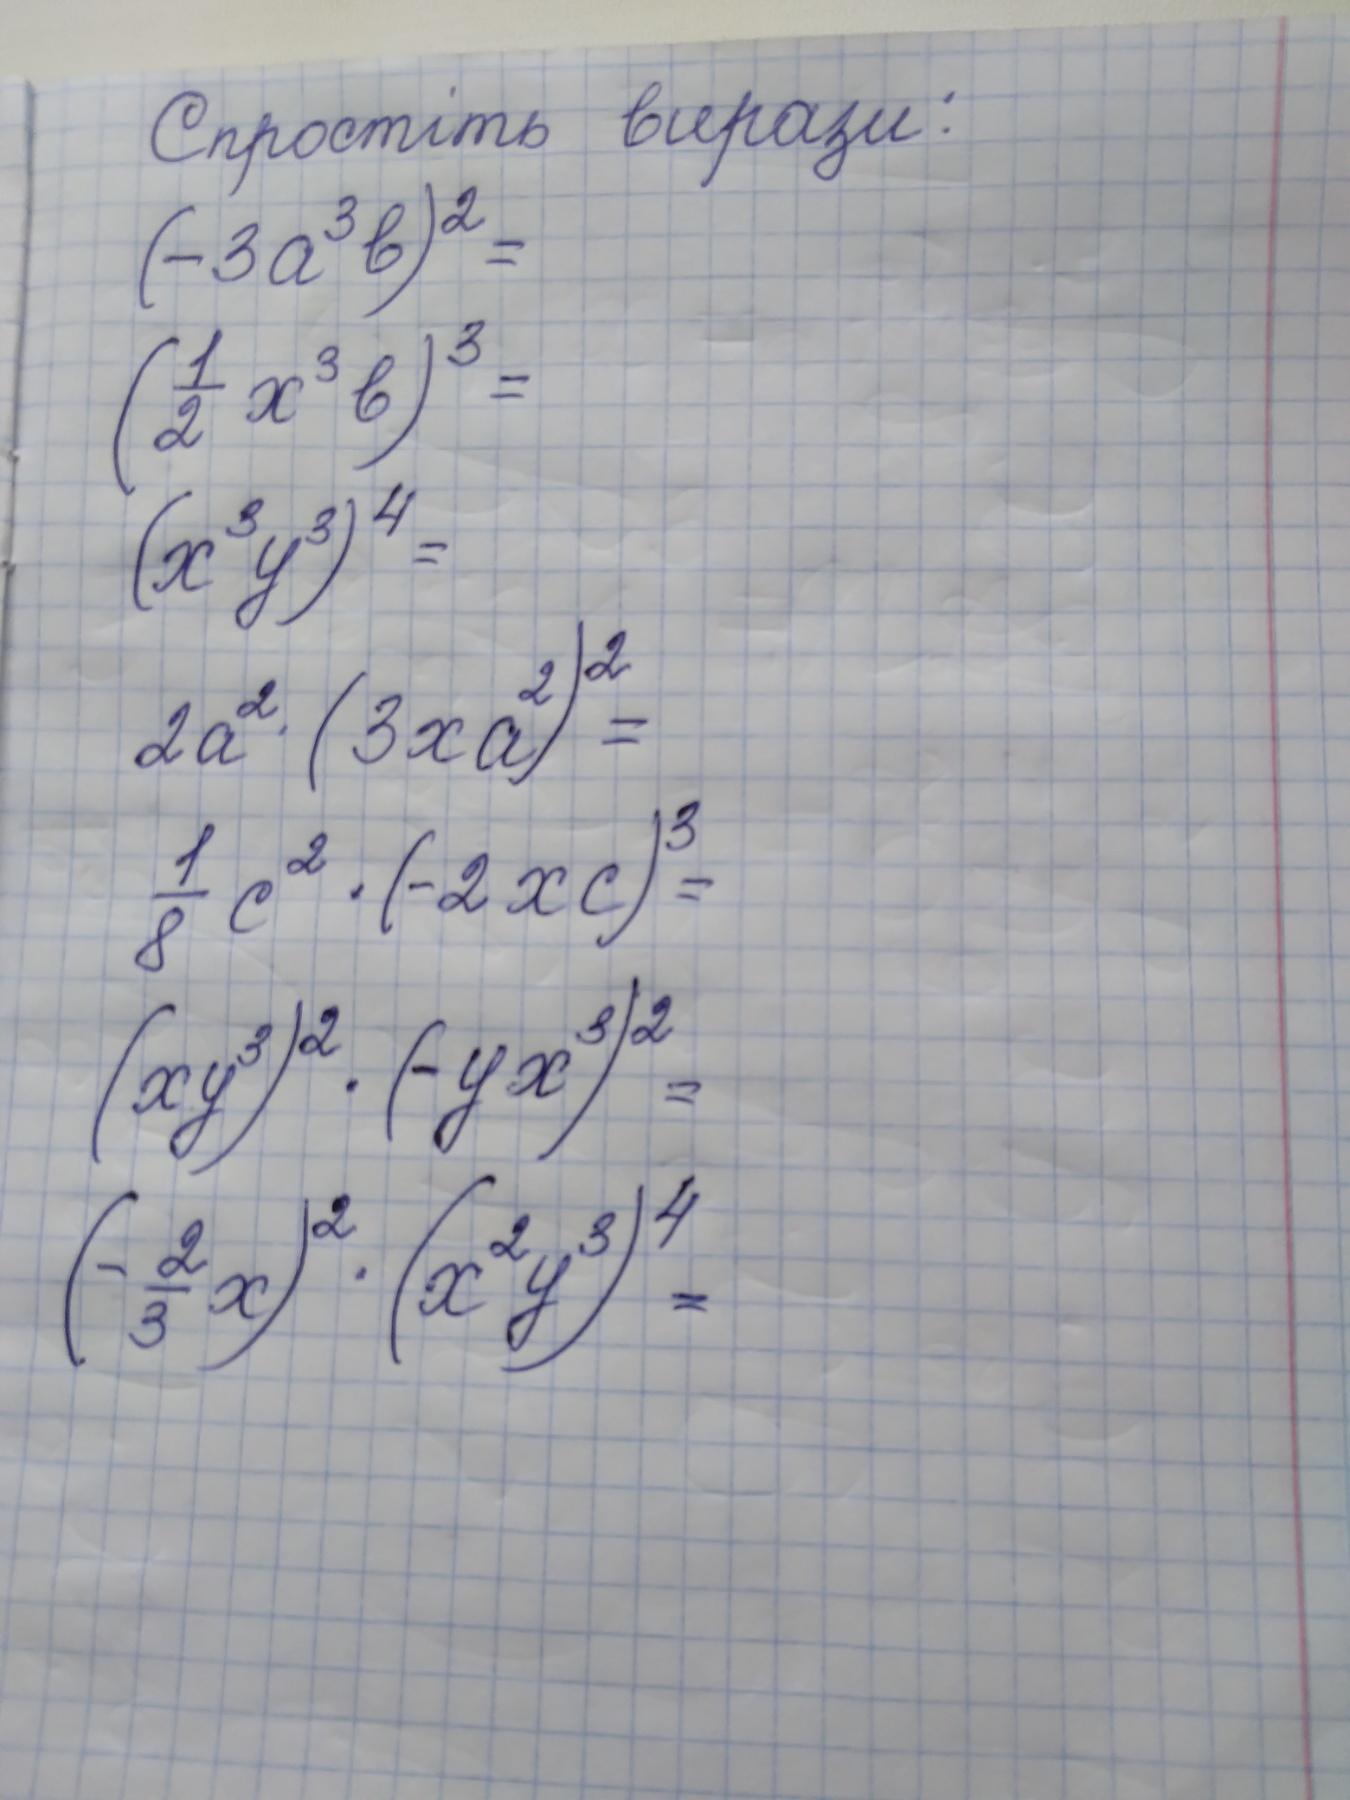 Спростіть вирази:
(-3a³b)²=
(1/2 x³b)³=
(x³y³)⁴=
2a²·(3xa²)²=
1/8 c²·(-2xc)³=
(xy³)²·(-yx³)²=
(-2/3 x)²·(x²y³)⁴=